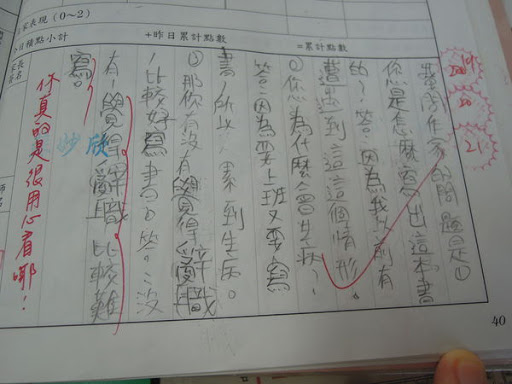 家長表現（0～2）
日積點小計
+昨日累計點數
=累計點數
我作家的問題是①
你是怎麼寫出這本書
的？答：因為我以前有
遭遇到這這個情形。
②你為什麼會生病？
答：因為要上班又要寫
書，所以累到生病。
③那你有沒有覺得辭職
比較好寫書？答：沒
有覺得辭職比較難
寫。
妙欣
你真的是很用心看哪！
20
21
40